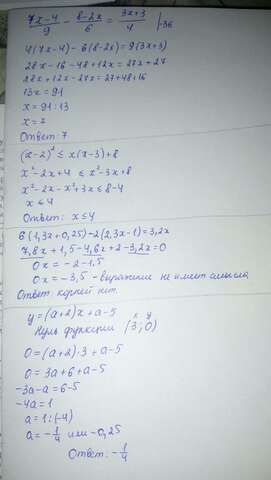 7x-4/9 - 8-2x/6 = 3x+3/4 |·36
4(7x-4)-6(8-2x)=9(3x+3)
28x-16-48+12x=27x+27
28x+12x-27x=27+48+16
13x=91
x=91:13
x=7
Ответ: 7
(x-2)² ≤ x(x-3)+8
x²-2x+4 ≤ x²-3x+8
x²-2x-x²+3x ≤ 8-4
x ≤ 4
Ответ: x ≤ 4
6(1,3x+0,25)-2(2,3x-1)=3,2x
7,8x+1,5-4,6x+2-3,2x=0
0x=-2-1,5
0x=-3,5 - выражение не имеет смысла
Ответ: корней нет
y=(a+2)x+a-5
x y
Нуль функции (3;0)
0=(a+2)·3+a-5
0=3a+6+a-5
-3a-a=6-5
-4a=1
a=1:(-4)
a=-1/4 или -0,25
Ответ: -1/4